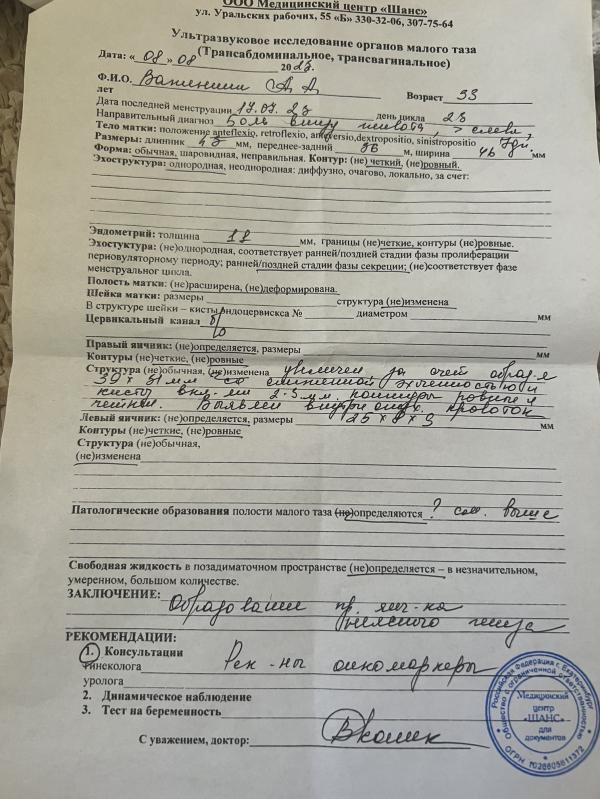 ООО Медицинский центр «Шанс»
ул. Уральских рабочих, 55 «Б» 330-32-06, 307-75-64
Ультразвуковое исследование органов малого таза
(Трансабдоминальное, трансвагинальное)
Дата: «08» 08 2023.
Ф.И.О.
Возраст 33
лет
Дата последней менструации 17.07.23 день цикла 23
Направительный диагноз Боль внизу живота, > слева,
Тело матки: положение anteflexio, retroflexio, anteversio, dextropositio, sinistropositio
Размеры: длинник 43 мм, переднее-задний 36 м, ширина 46 мм
Форма: обычная, шаровидная, неправильная. Контур: (не) четкий, (не)ровный.
Эхоструктура: однородная, неоднородная: диффузно, очагово, локально, за счет:
Эндометрий: толщина мм, границы (не)четкие, контуры (не)ровные.
Эхостуктура: (не)однородная, соответствует ранней/поздней стадии фазы пролиферации
периовуляторному периоду; ранней/поздней стадии фазы секреции; (не)соответствует фазе
менструальног цикла.
Полость матки: (не)расширена, (не)деформирована.
Шейка матки: размеры структура (не)изменена
В структуре шейки – кисты эндоцервискса № диаметром мм
Цервикальный канал б/о
Правый яичник: (не)определяется, размеры
Контуры (не)четкие, (не)ровные
Структура (не)обычная, (не)изменена увеличен за счет образ-я
39 х 31 мм со смешанной эхогенностью и
кисты вкл-ми 2-3 мм. контуры ровные и
четкие. Выявлен внутриопух. кровоток
Левый яичник: (не)определяется, размеры 25 х 8 х 9 мм
Контуры (не)четкие, (не)ровные
Структура (не)обычная,
(не)изменена
Патологические образования полости малого таза (не)определяются ? см. выше
Свободная жидкость в позадиматочном пространстве (не)определяется – в незначительном,
умеренном, большом количестве.
ЗАКЛЮЧЕНИЕ: Образование пр. яич-ка
неясного генеза
РЕКОМЕНДАЦИИ:
1. Консультации
гинеколога Рек-ны онкомаркеры
уролога
2. Динамическое наблюдение
3. Тест на беременность
С уважением, доктор:
Российская Федерация г. Екатеринбург
Общество с ограниченной ответственностью
Медицинский
центр
«ШАНС»
для
документов
ОГРН 1026605611372